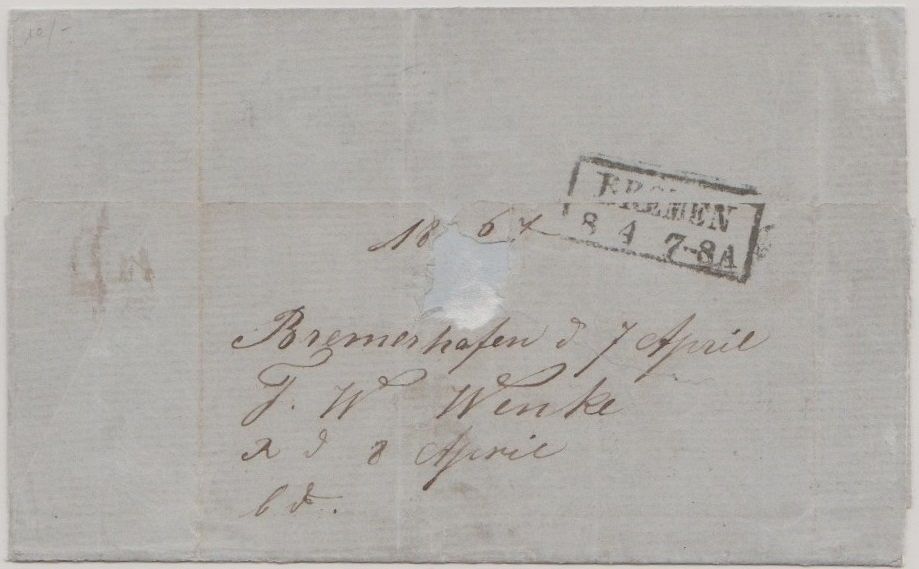 BREMEN
8 4 7-8A
1867
Bremerhafen d 7 April
F. W Wenke
R d 8 April
b d.